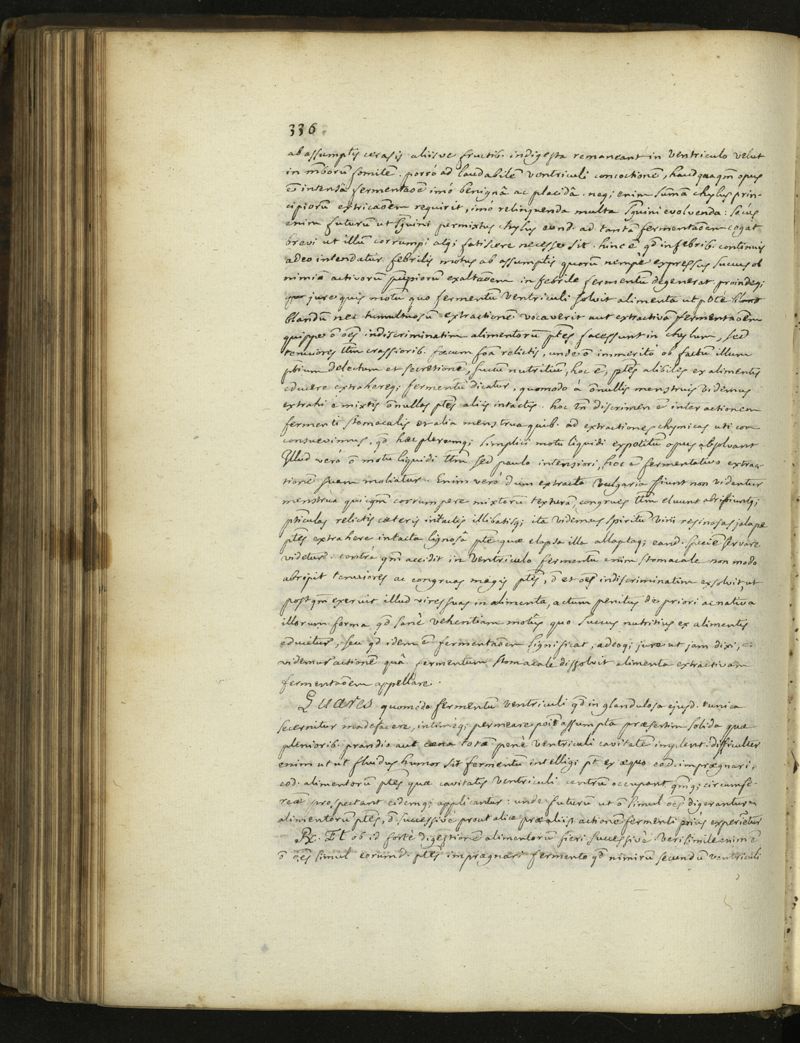 336
ab assumptis cerasis aliisve fructib. indigesta remaneant in ventriculo velut
in morū fomitē. porró ad laudabilē ventriculi concoctionē, haudquaqm̄ opus
ē intensâ fermentaōē imó benignâ ac placidâ. neq; enim sūmā chylus prin-
cipiorū extricaōem requirit, imó relinquenda multa sguini evolvenda: secus
enim futurū ut sguini permistus chylus eond. ad tantā fermentaōem cogat
brevi ut illū corrumpi atq; fatiscere necesse sit. hinc ē qd in febrib. continuis
adeo intendatur febrilis motus ab assumptis quorū nempè expressus succus ob
nimiā activorū pupiorū exaltaōem in febrile fermentū degenerat. proindeq;
jure quis motū quo fermentū ventriculi solvit alimenta ut pote
blandū nec tumultuosū extractionē vocaverit aut extractivā fermentaōem
quippe ō oēs indiscriminatim alimentorū ptēs facessunt in chylum, sed
tenuiores tm̄ crassiorib. fæcum foā relictis, unde ō immeritó ob factū illum
ptium delectum et secretionē, succū nutritiūm, hoc ē, ptēs alibiles ex alimentis
educere extrahereq; fermentū dicatur, quomodo á ōnullis menstruis videmus
extrahi e mixtis ōnullas ptēs aliis intactis. hoc tn̄ discrimen ē inter actionem
fermenti stomacalis et alia menstrua quib. ad extractiones chymicas uti con
consuevimus, qd hæc plerumq; simplici motu liquidi expositū opus absolvant
Illud veró ō motu liquidi tm̄ sed paulo intensiori, hoc ē fermentativo extrac
tionē suam moliatur. Enim veró dum extracta vulgaria fiunt non videntur
menstrua quicqm̄ corrumpere mixtorū texturā, congrues tm̄ eluunt abripiuntq;
pticulas relictis cæteris intactis illibatisq; ita videmus spiritū vini resinosas jalapæ
ptēs extrahere intacta lignosâ ptē quæ elapsa illa allapsaq; eand. speciē servare
videtur. contrá qm̄ accidit in ventriculo fermentū enim stomacale non modo
abripit tenuiores ac congruas magis ptēs, d et oēs indiscriminatim exsolvit, ut
postqm̄ exeruit illud vires suas in alimenta, actum penitus de priori ac nativa
illorum forma qd sanè vehentiam motûs quo succus nutritius ex alimentis
educitur, seu qd idem ē fermentaōem significat, adeoq; jure ut jam dixi,
videmur actionē quâ fermentum stomacale dissolvit alimenta extractivam
fermentaōem appellare.
Quæres quomodo fermentū ventriculi qd in glandulosa ejusd. tunica
secernitur madefacere, interiusq; permeare poīt assumpta præsertim solida quæ
pleniorib. prandio aut cœna totā penè ventriculi cavitatē implent. difficulter
enim ut ut fluidus humor sit fermentū intelligi pt ex æquo eod. imprægnari,
eod. alimentorū ptēs quæ cavitatis ventriculi centrū occupant qmq; circumfe-
reæ prospectant eidemq; applicantur: unde futurū ut ō simul oēs digerantur
alimentorū ptēs, d successivè prout aliæ præ aliis actionē fermenti priùs experientur
R. Et ob id fortè digestionē alimentorū fieri successivè verisimile enim ē
ō oēs simul eorumd. ptēs imprægnari fermento qd nimirū secundū ventriculi